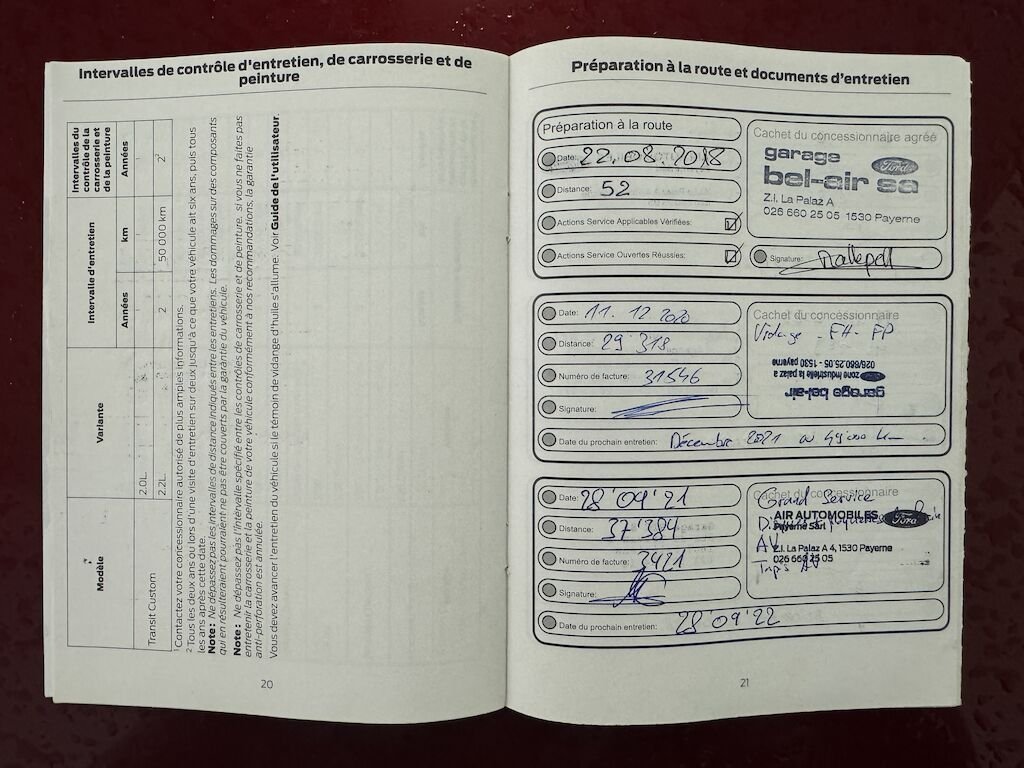 Intervalles de contrôle d'entretien, de carrosserie et de
peinture
Modèle
Variante
Intervalle d'entretien
Intervalles du
contrôle de la
carrosserie et
de la peinture
Années
km
Années
Transit Custom
2.0L
2.2L
2
50 000 km
2²
¹ Contactez votre concessionnaire autorisé de plus amples informations.
² Tous les deux ans ou lors d'une visite d'entretien sur deux jusqu'à ce que votre véhicule ait six ans, puis tous
les ans après cette date.
Note : Ne dépassez pas les intervalles de distance indiqués entre les entretiens. Les dommages sur des composants
qui en résulteraient pourraient ne pas être couverts par la garantie du véhicule.
Note : Ne dépassez pas l'intervalle spécifié entre les contrôles de carrosserie et de peinture. si vous ne faites pas
entretenir la carrosserie et la peinture de votre véhicule conformément à nos recommandations, la garantie
anti-perforation est annulée.
Vous devez avancer l'entretien du véhicule si le témoin de vidange d'huile s'allume. Voir Guide de l'utilisateur.
20
Préparation à la route et documents d'entretien
Préparation à la route
Date: 22.08.2018
Distance: 52
Actions Service Applicables Vérifiées:
Actions Service Ouvertes Réussies:
Cachet du concessionnaire agréé
garage
Ford
bel-air sa
Z.I. La Palaz A
026 660 25 05 1530 Payerne
Signature:
Date: 11. 12 2020
Distance: 29 318
Numéro de facture: 31546
Signature:
Date du prochain entretien: Décembre 2021 ou 49'000 km
Cachet du concessionnaire
Vidange - FH - FP
garage bel-air
zone industrielle la palaz a
026/660.25.05 - 1530 payerne
Date: 28'09'21
Distance: 37'384
Numéro de facture: 3421
Signature:
Date du prochain entretien: 28'09'22
Cachet du concessionnaire
Grand Service
AIR AUTOMOBILES
Ford
Payerne Sàrl
AV
Z.I. La Palaz A 4, 1530 Payerne
026 660 25 05
21